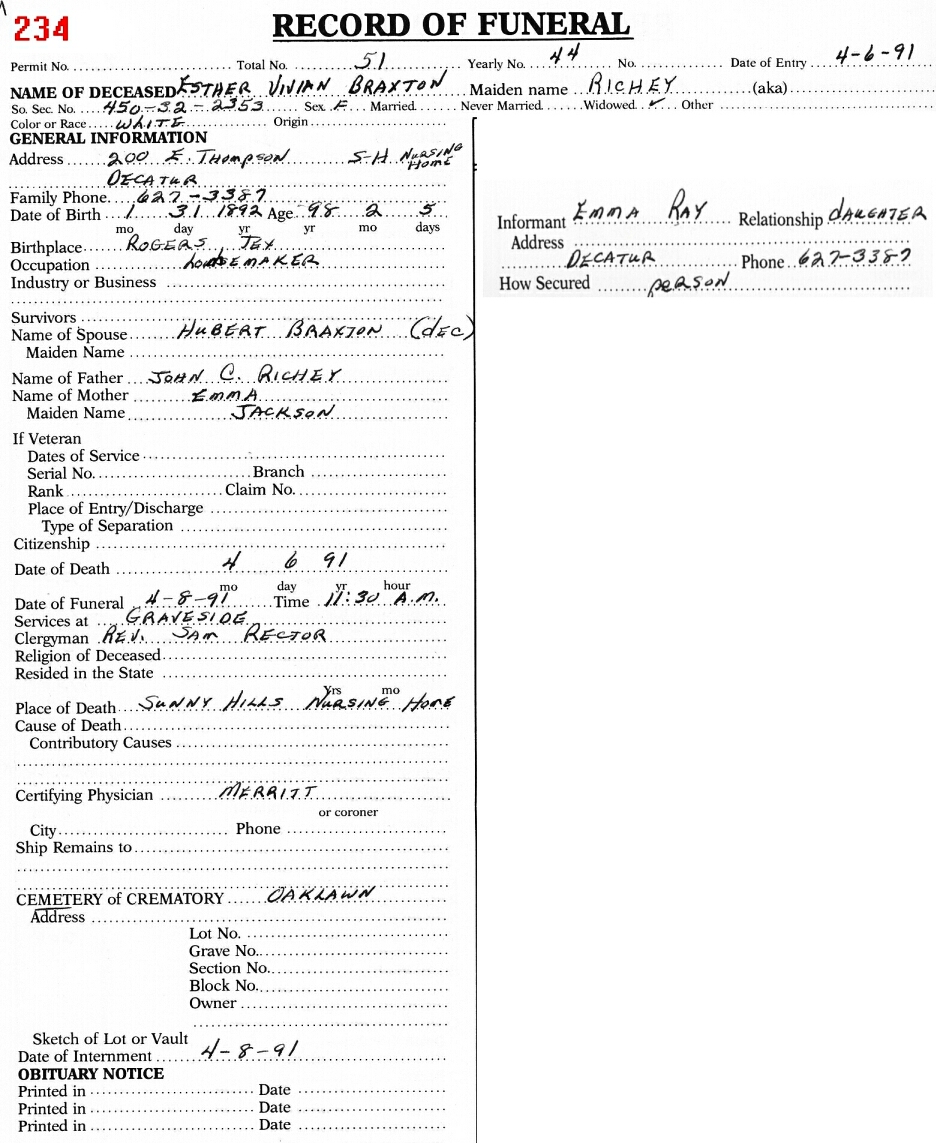 234
RECORD OF FUNERAL
Permit No. Total No. 51 Yearly No. 44 No. Date of Entry 4-6-91
NAME OF DECEASED ESTHER VIVIAN BRAXTON Maiden name RICHEY (aka)
So. Sec. No. 450-32-2353 Sex F Married Never Married Widowed ✓ Other
Color or Race WHITE Origin
GENERAL INFORMATION
Address 200 E. THOMPSON S-H NURSING HOME
DECATUR
Family Phone 627-3387
Date of Birth 1 31 1892 Age 98 2 5
mo day yr yr mo days
Birthplace ROGERS, TEX
Occupation HOMEMAKER
Industry or Business
Survivors
Name of Spouse HUBERT BRAXTON (DEC)
Maiden Name
Name of Father JOHN C. RICHEY
Name of Mother EMMA
Maiden Name JACKSON
If Veteran
Dates of Service
Serial No. Branch
Rank Claim No.
Place of Entry/Discharge
Type of Separation
Citizenship
Date of Death 4 6 91
mo day yr hour
Date of Funeral 4-8-91 Time 11:30 A.M.
Services at GRAVESIDE
Clergyman REV. SAM RECTOR
Religion of Deceased
Resided in the State
Yrs mo
Place of Death SUNNY HILLS NURSING HOME
Cause of Death
Contributory Causes
Certifying Physician MERRITT
or coroner
City Phone
Ship Remains to
CEMETERY of CREMATORY OAKLAWN
Address
Lot No.
Grave No.
Section No.
Block No.
Owner
Sketch of Lot or Vault
Date of Internment 4-8-91
OBITUARY NOTICE
Printed in Date
Printed in Date
Printed in Date
Informant EMMA RAY Relationship DAUGHTER
Address
DECATUR Phone 627-3387
How Secured PERSON